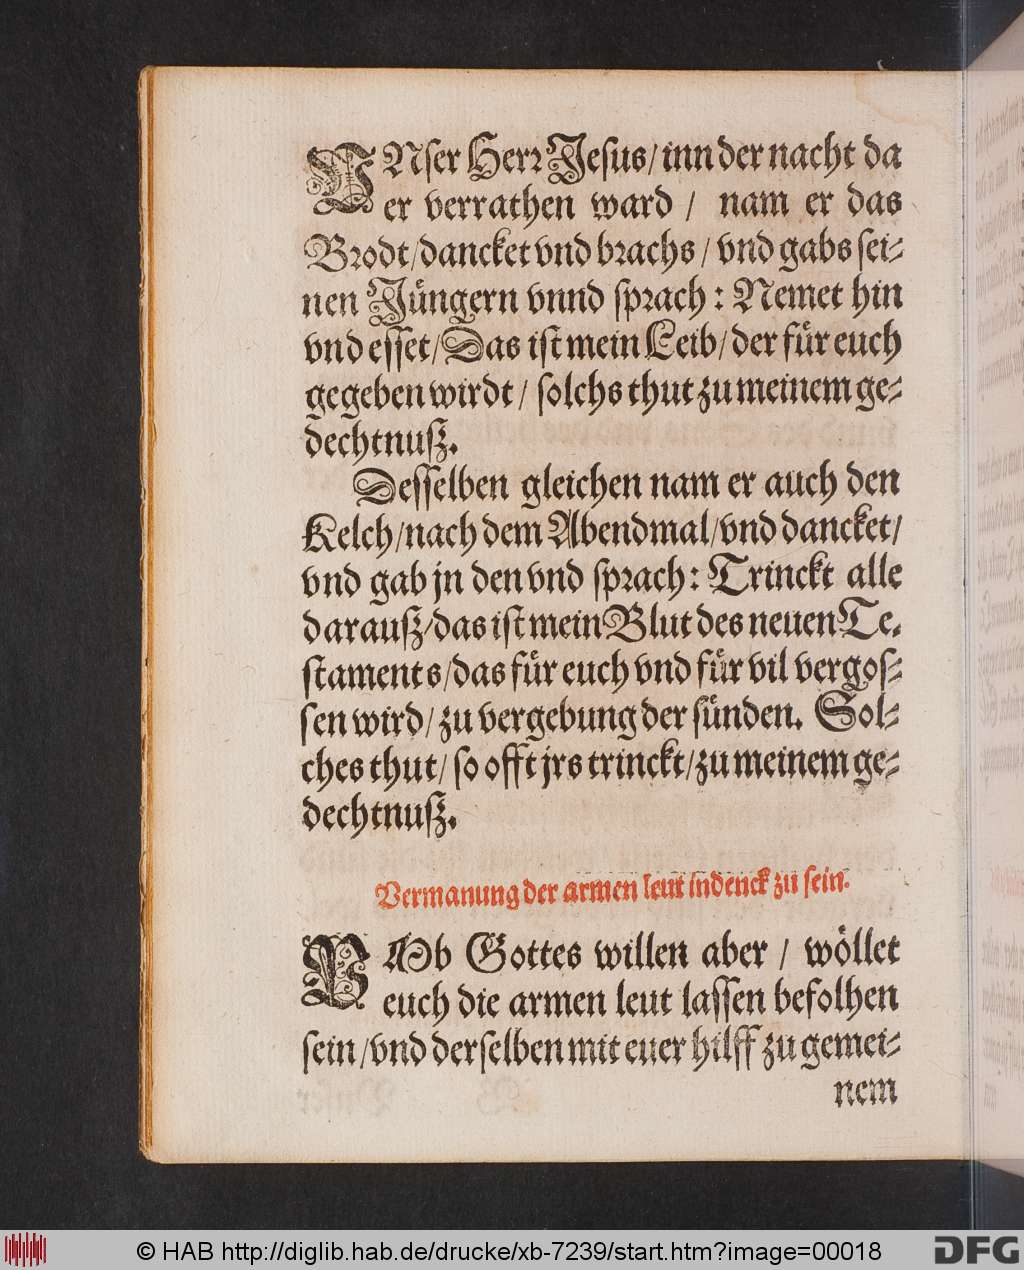 VNser Herr Jesus/ inn der nacht da
er verrathen ward / nam er das
Brodt/ dancket vnd brachs / vnd gabs sei⸗
nen Jüngern vnnd sprach : Nemet hin
vnd esset/ Das ist mein Leib/ der für euch
gegeben wirdt / solchs thut zu meinem ge⸗
dechtnuß.
Desselben gleichen nam er auch den
Kelch/ nach dem Abendmal/ vnd dancket/
vnd gab jn den vnd sprach : Trinckt alle
darauß/ das ist mein Blut des neuen Te⸗
staments/ das für euch vnd für vil vergos⸗
sen wird/ zu vergebung der sünden. Sol⸗
ches thut/ so offt jrs trinckt/ zu meinem ge⸗
dechtnuß.
Vermanung der armen leut indenck zu sein.
VMb Gottes willen aber / wöllet
euch die armen leut lassen befolhen
sein / vnd derselben mit euer hilff zu gemei⸗
nem
© HAB http://diglib.hab.de/drucke/xb-7239/start.htm?image=00018
DFG